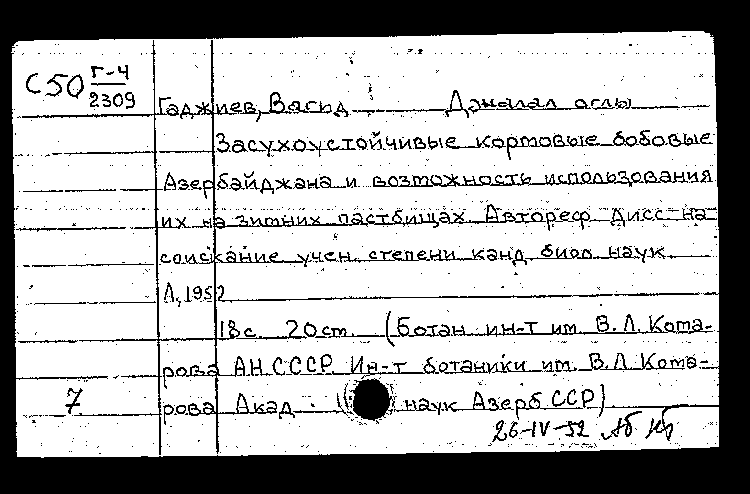 С50 Г-4
2309
Гаджиев, Вагид Джалал оглы
Засухоустойчивые кормовые бобовые
Азербайджана и возможность использования
их на зимних пастбищах Автореф Дисс на
соискание учен. степени канд. биол наук.
Л, 1952
18 с. 20 см. (Ботан ин-т им. В. Л. Кома-
рова АН СССР Ин-т ботаники им. В. Л Кома-
7 рова Акад. наук Азерб ССР)
26-IV-52